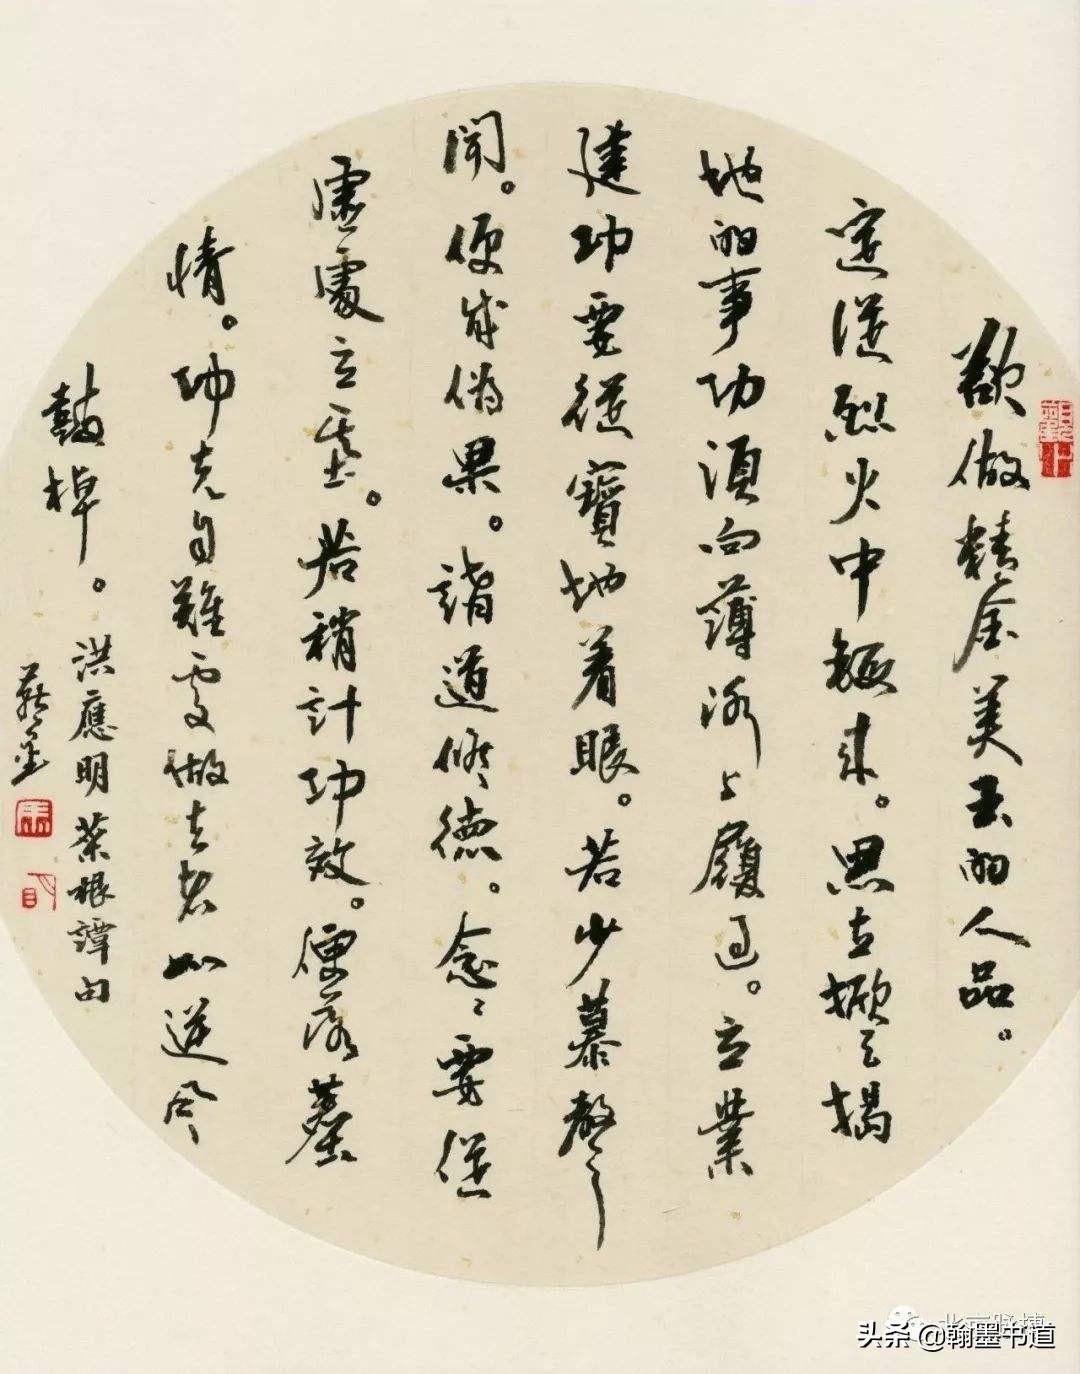 欲做精金美玉的人品。
定從烈火中鍛來。思立掀天揭
地的事功須向薄冰上履過。立業
建功要從實地着眼。若少慕聲
聞。便成偽果。講道修德。念々要從
虛處立基。若稍計功效。便落塵
情。功夫自難處做去者如逆風
鼓棹。
洪應明菜根譚句
头条 @翰墨书道